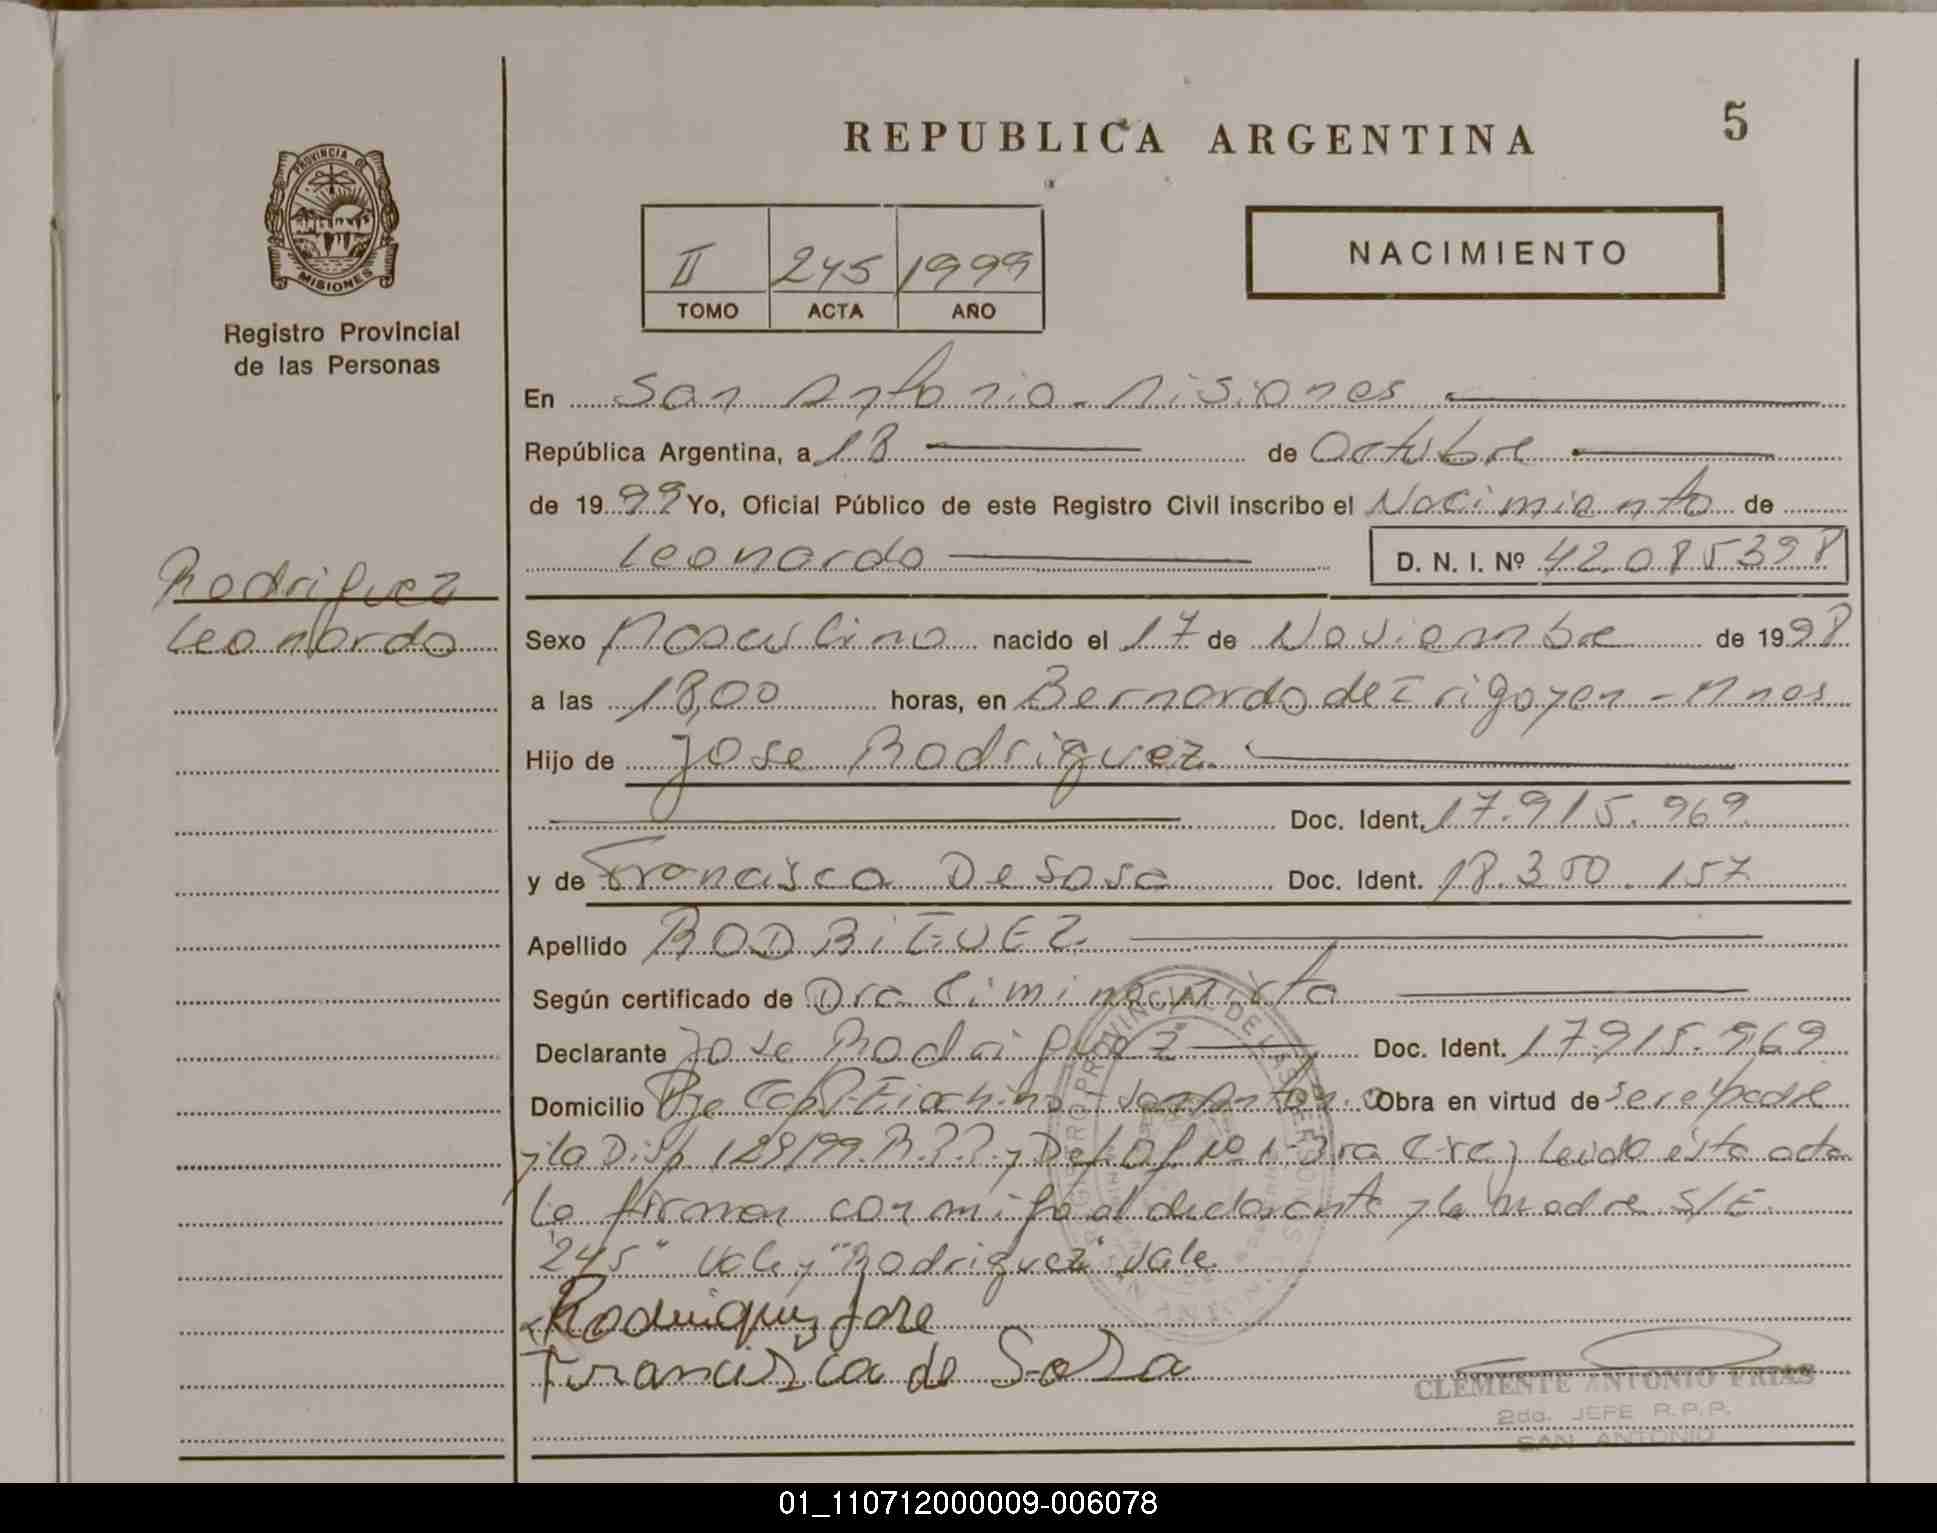 REPUBLICA ARGENTINA
5
PROVINCIA DE
MISIONES
Registro Provincial
de las Personas
II 245 1999
TOMO ACTA AÑO
NACIMIENTO
En San Antonio - Misiones
República Argentina, a 18 de Octubre
de 1999 Yo, Oficial Público de este Registro Civil inscribo el Nacimiento de
Leonardo D. N. I. Nº 42.085398
Rodriguez
Leonardo
Sexo Masculino nacido el 17 de Noviembre de 1998
a las 18,00 horas, en Bernardo de Irigoyen - Mnes
Hijo de Jose Rodriguez
Doc. Ident. 17.915.969
y de Francisca De Sosa Doc. Ident. 18.350.157
Apellido RODRIGUEZ
Según certificado de Dra Mirta
Declarante Jose Rodriguez Doc. Ident. 17.915.969
Domicilio Pje Cap. San Anton. Obra en virtud de ser el padre
y la Disp. 129/99. R.P.P. y Def. Of. Nº 1 - 3ra Circ) Leida esta acta
la firman conmigo el declarante y la madre S/E
"245" Vale y "Rodriguez" Vale
Rodriguez Jose
Francisca de Sosa
CLEMENTE ANTONIO FRIAS
2do. JEFE R.P.P.
SAN ANTONIO
01_110712000009-006078